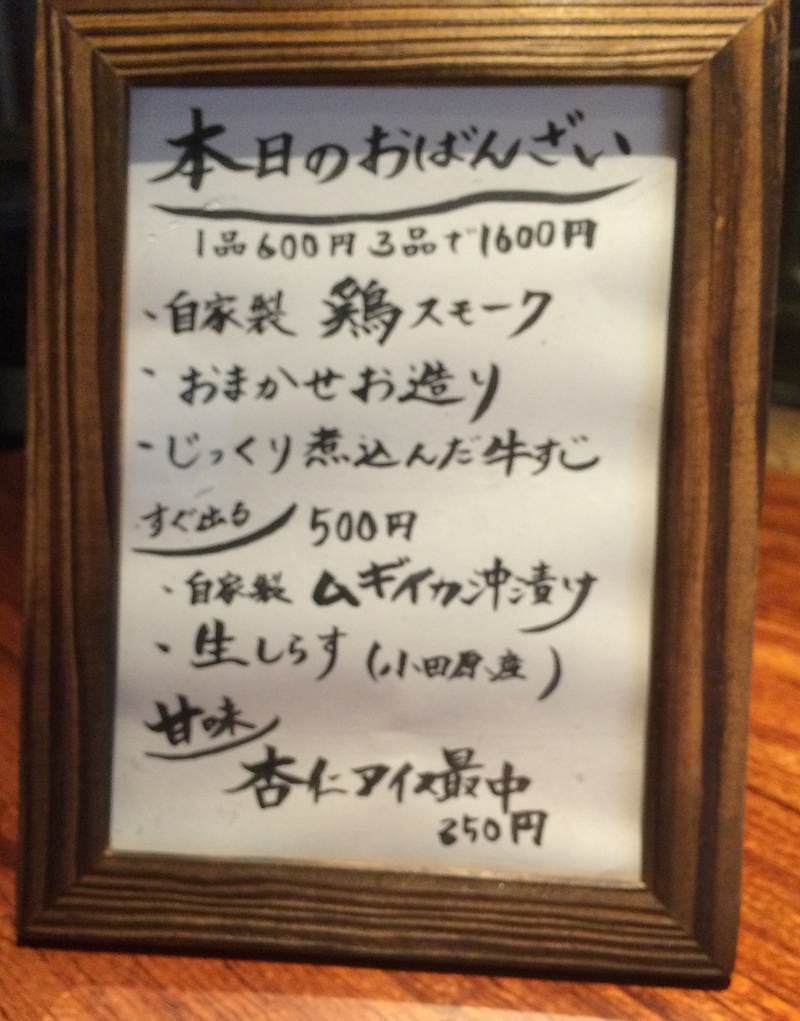 本日のおばんざい
1品600円 3品で1600円
・自家製 鶏スモーク
・おまかせお造り
・じっくり煮込んだ牛すじ
すぐ出る 500円
・自家製 ムギイカ沖漬け
・生しらす(小田原産)
甘味
杏仁アイス最中
350円